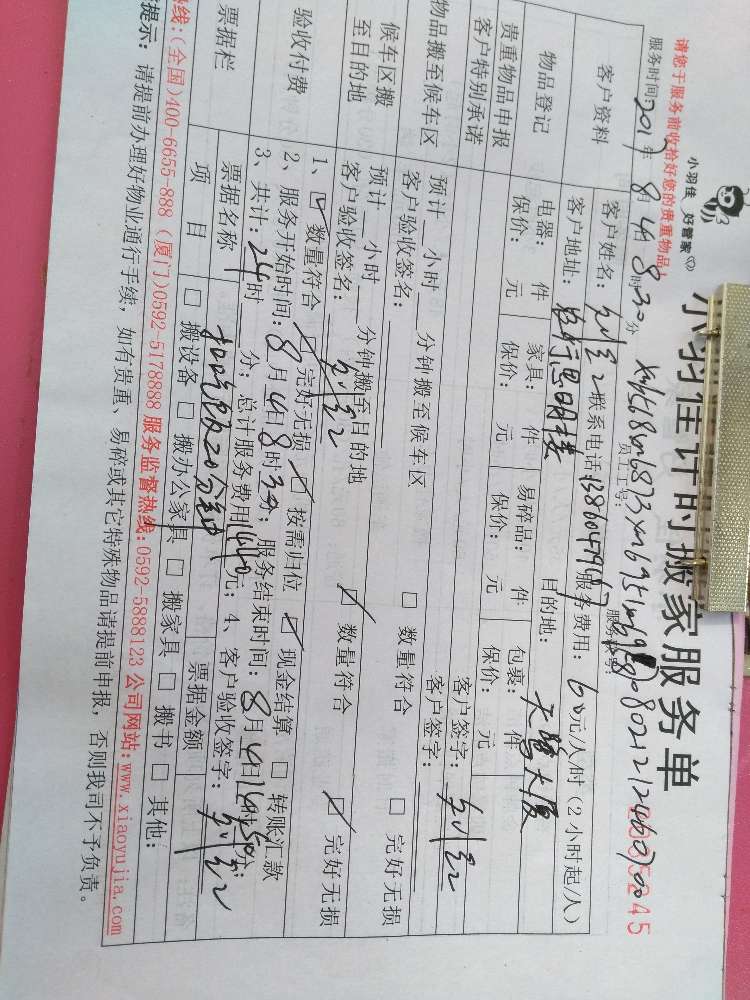 小羽佳 好管家
小羽佳计时搬家服务单
请您于服务前收拾好您的贵重物品!
员工工号:
服务时间2019年8月4日8时30分
客户资料
客户姓名: 联系电话 服务费用:60元/人/时(2小时起/人)
客户地址: 思明楼 目的地: 天鹭大厦
物品登记
电器: 件 家具: 件 易碎品: 件 包裹: 件
保价: 元 保价: 元 保价: 元 保价: 元
贵重物品申报 客户签字:
客户特别承诺 客户签字:
物品搬至候车区
预计__小时__分钟搬至候车区
客户验收签名: □ 数量符合 □ 完好无损
候车区搬至目的地
预计__小时__分钟搬至目的地
客户验收签名: 数量符合 完好无损
验收付费
1、 数量符合 完好无损 按需归位 现金结算 □ 转账汇款
2、服务开始时间:8月4日8时30分;服务结束时间:8月4日16时50分;
3、共计:24时 分;总计服务费用1440元;4、客户验收签字:
票据栏
票据名称 扣吃饭20分钟 票据金额
项 目 □ 搬设备 □ 搬办公家具 □ 搬家具 □ 搬书 □ 其他:
热线:(全国)400-6655-888 (厦门)0592-5178888 服务监督热线:0592-5888123 公司网站:www.xiaoyujia.com
提示: 请提前办理好物业通行手续,如有贵重、易碎或其它特殊物品请提前申报,否则我司不予负责。